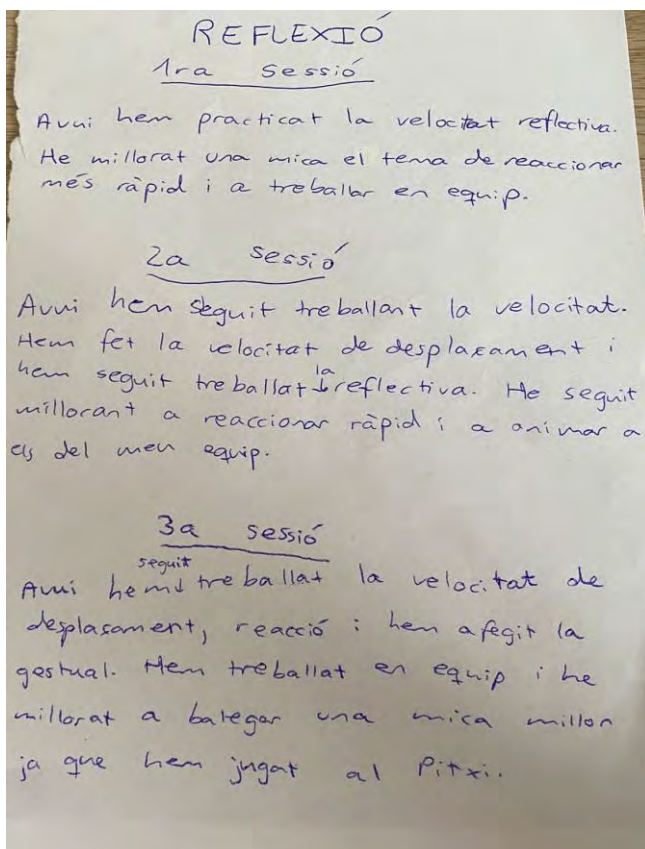 REFLEXIÓ
1ra sessió
Avui hem practicat la velocitat reflectiva.
He millorat una mica el tema de reaccionar
més ràpid i a treballar en equip.
2a sessió
Avui hem seguit treballant la velocitat.
Hem fet la velocitat de desplaxament i
hem seguit treballat la reflectiva. He seguit
millorant a reaccionar ràpid i a animar a
els del meu equip.
3a sessió
Avui hem seguit treballat la velocitat de
desplaçament, reacció i hem afegit la
gestual. Hem treballat en equip i he
millorat a bategar una mica millor
ja que hem jugat al Pitxi.